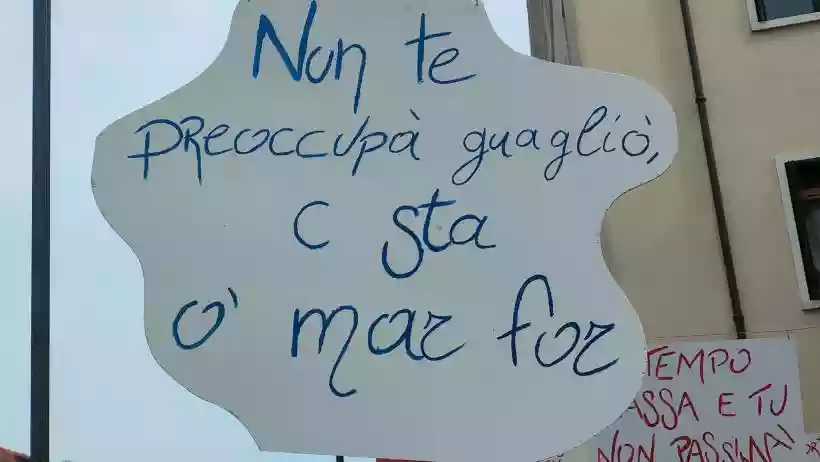 Non te
PREOCCUPÀ guagliò,
C sta
O' mar for
TEMPO
ASSA E TU
NON PASSIMAI